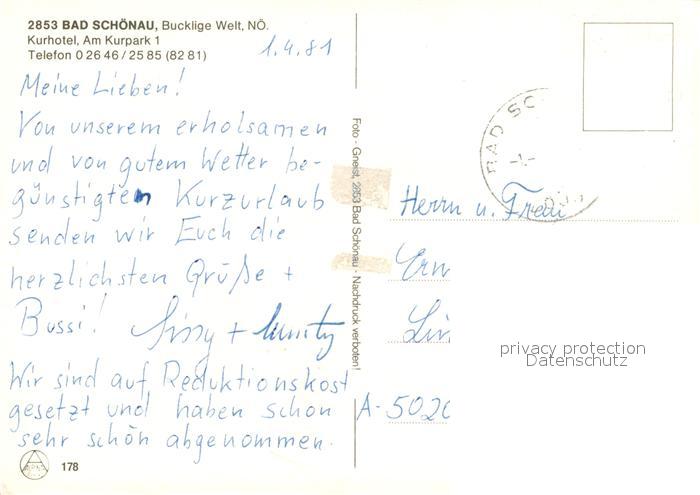 2853 BAD SCHÖNAU, Bucklige Welt, NÖ.
Kurhotel, Am Kurpark 1
Telefon 0 26 46 / 25 85 (82 81)
1.4.81
Meine Lieben!
Von unserem erholsamen
und von gutem Wetter be-
günstigten Kurzurlaub
senden wir Euch die
herzlichsten Grüße +
Bussi! Sissy +
Wir sind auf Reduktionskost
gesetzt und haben schon
sehr schön abgenommen.
178
Foto - Gneist, 2853 Bad Schönau - Nachdruck verboten!
BAD SC
Herrn u. Frau
Ern
Lin
A-5020
privacy protection
Datenschutz